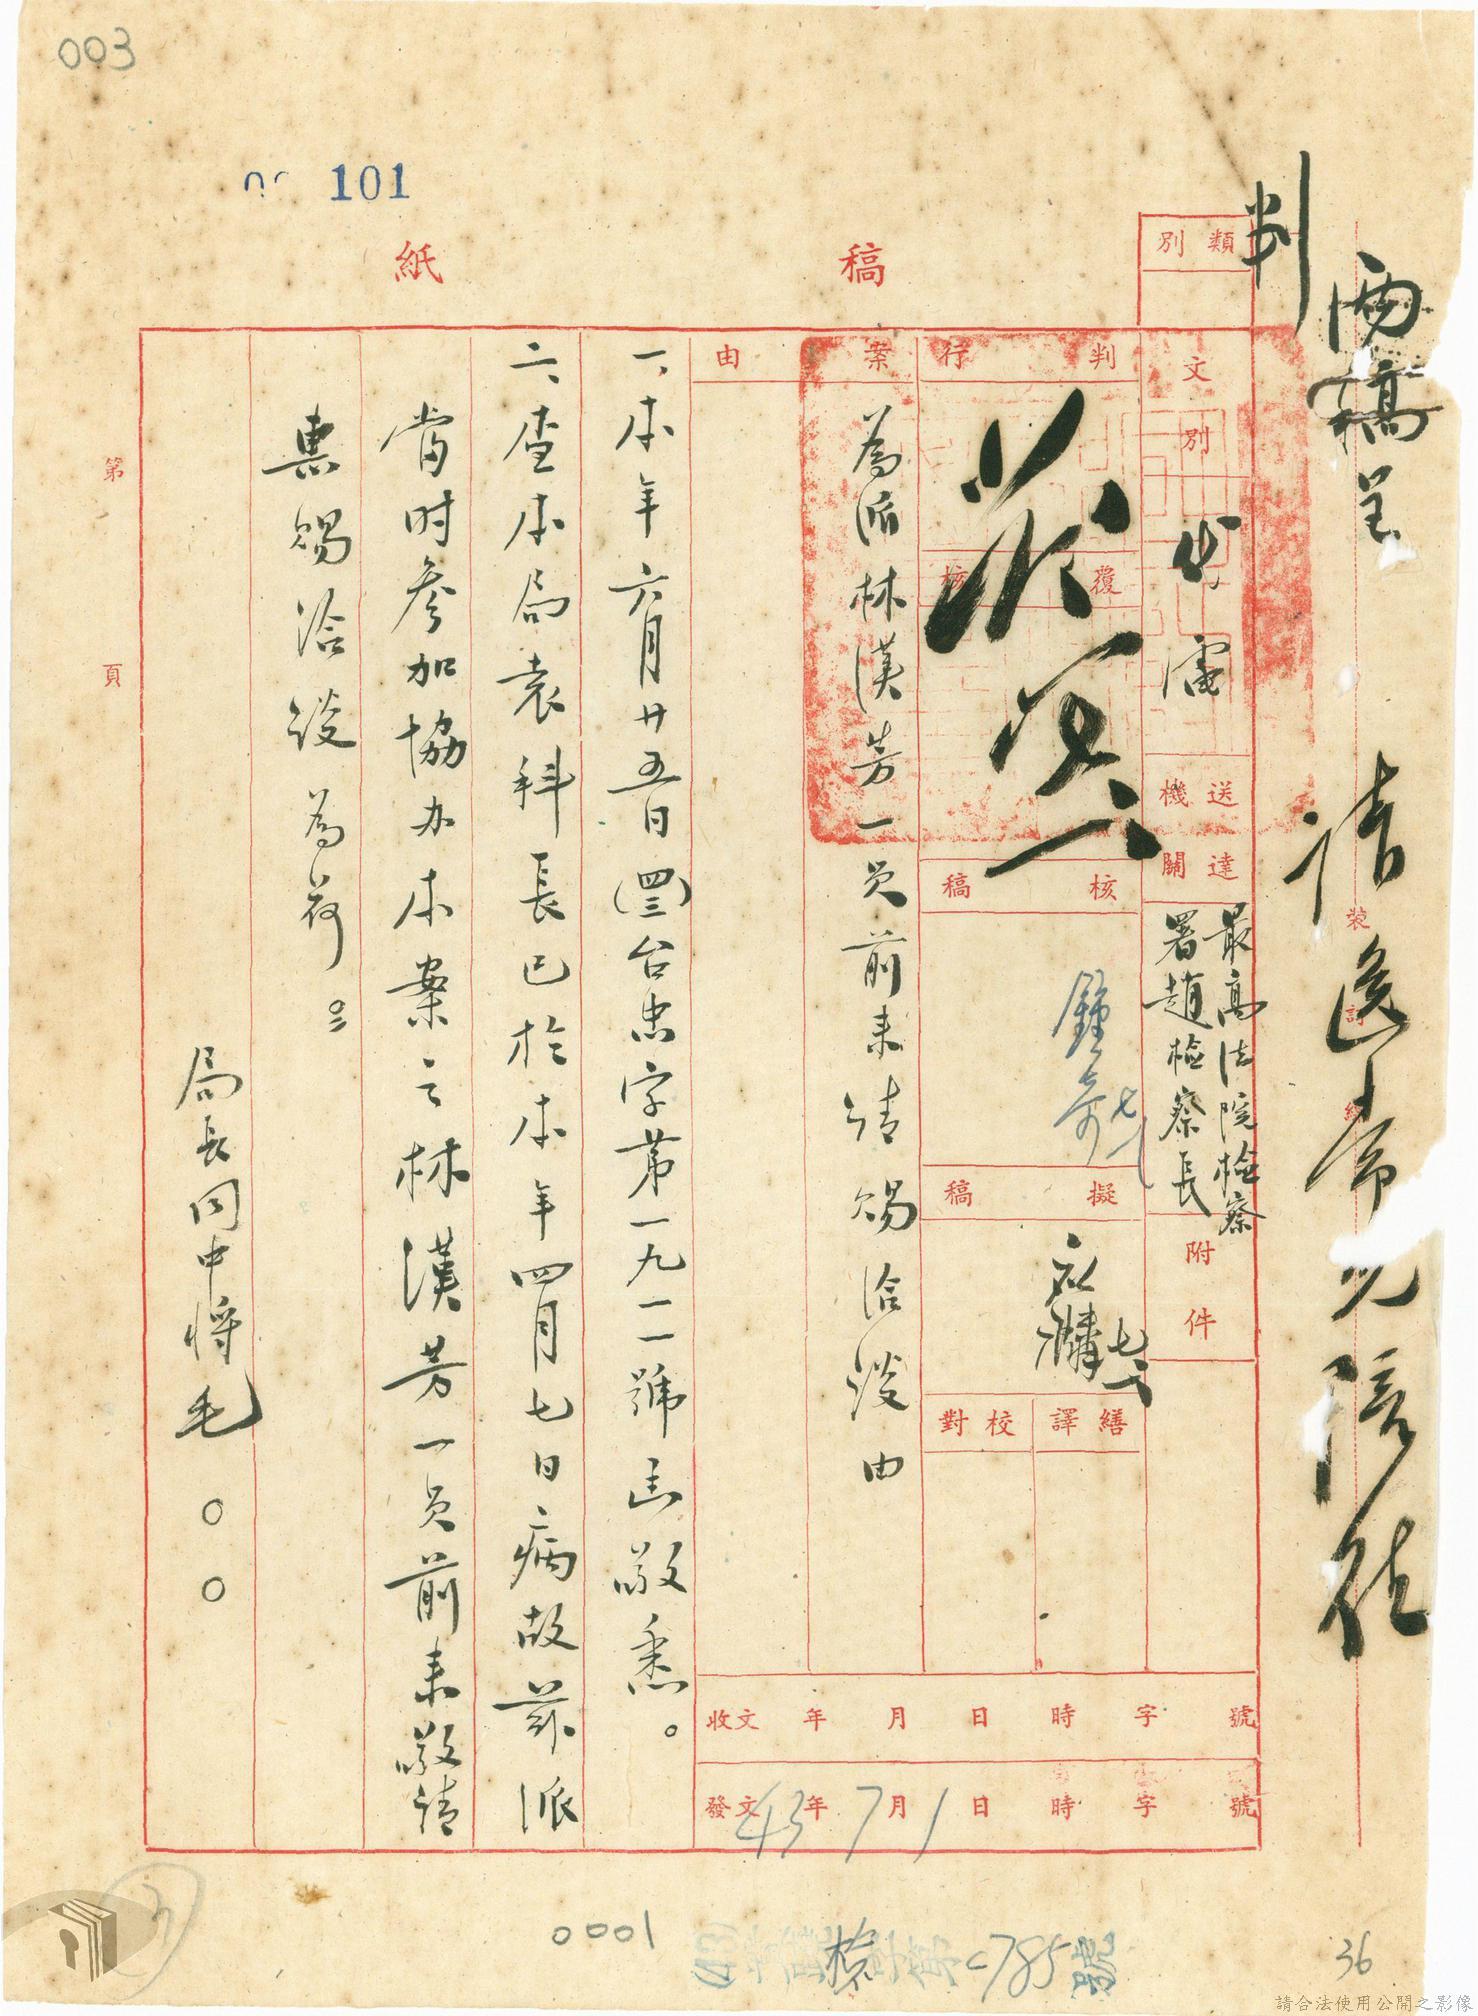 003
101
稿紙
類別
兩稿呈判
文別
代電
送達機關
最高法院檢察
署趙檢察長
附件
判行
覆核
核稿
擬稿
七
繕譯
校對
案由
為派林漢芳一員前來請賜洽談由
收文 年 月 日 時 字 號
發文 43年7月1日 時 字 號
一、本年六月廿五日(四三)台忠字第一九一一號函敬悉。
二、查本局袁科長已於本年四月七日病故茲派
當時參加協办本案之林漢芳一員前來敬請
惠賜洽談為荷。
局長同中將毛○○
第 頁
裝
訂
線
0001
字第 785號
36
請合法使用公開之影像